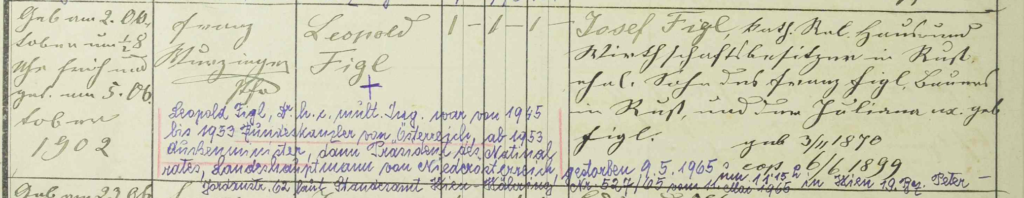 Geb am 2. Ok
tober um ½8
Uhr früh und
get. am 5. Ok
tober
1902
Franz
Wurzinger
Pfr
Leopold
Figl
1 - 1 - 1 -
Josef Figl, kath. Rel. Haus und
Wirthschaftsbesitzer in Rust
ehel. Sohn des Franz Figl, Bauers
in Rust, und der Juliana ux. geb
Figl.
geb 3/II 1870
cop 6/6 1899
Leopold Figl, Dr. h. c. mult. Ing. war von 1945
bis 1953 Bundeskanzler von Österreich, ab 1953
Aussenminister, dann Präsident des National
rates, Landeshauptmann von Niederösterreich, gestorben 9.5.1965 um 11.15 h
62 laut Standesamt Wien - Nr. 527/65 vom Mai 1965 in Wien 19. Bez. Peter -
Geb am 23.